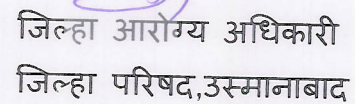 जिल्हा आरोग्य अधिकारी
जिल्हा परिषद,उस्मानाबाद